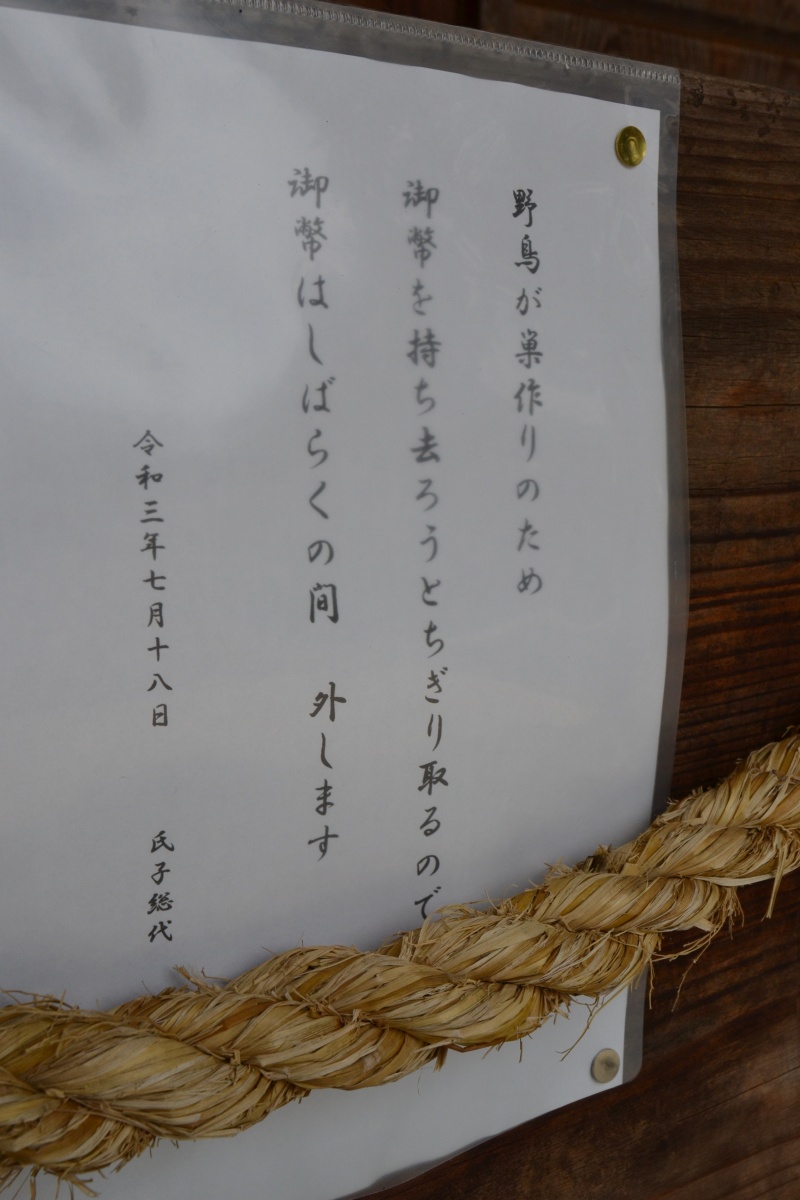 野鳥が巣作りのため
御幣を持ち去ろうとちぎり取るので
御幣はしばらくの間　外します
令和三年七月十八日　氏子総代